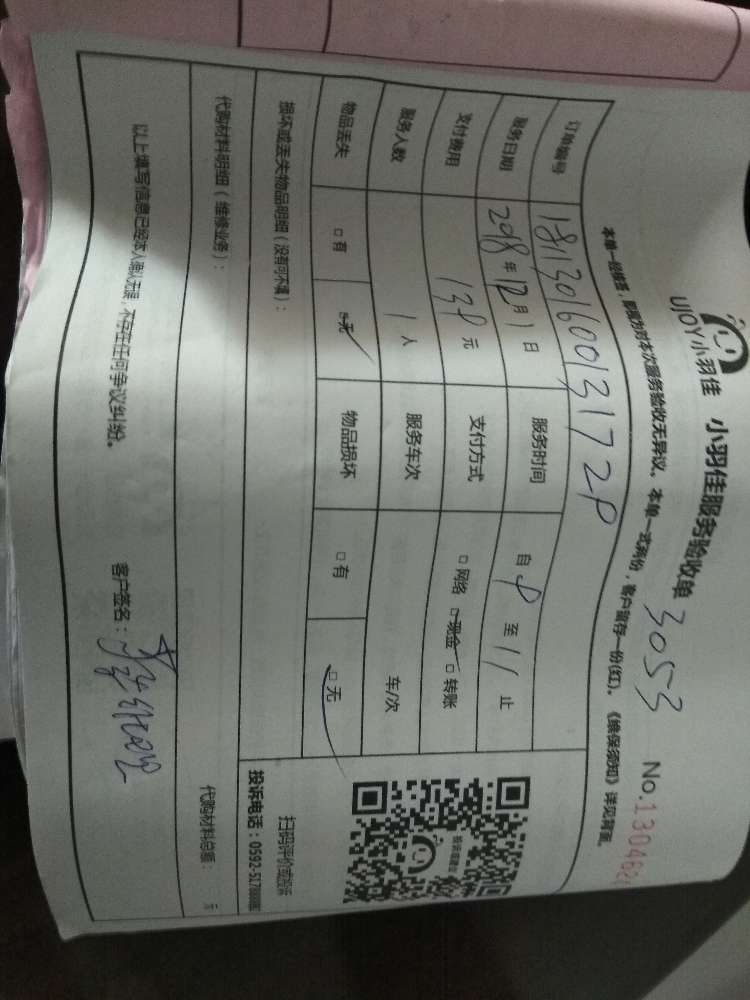 UJOY小羽佳 小羽佳服务验收单 3053 No.130462
本单一经签签,即视为对本次服务验收无异议。本单一式两份,客户留存一份(红)。《维保须知》详见背面。
订单编号 181130160013172P
服务日期 2018年12月1日 服务时间 自 9 至 11 止
支付费用 138元 支付方式 □网络 □现金 □转账
服务人数 1人 服务车次 车/次
物品丢失 □有 □无 物品损坏 □有 □无
损坏或丢失物品明细(没有可不填):
扫码评价或投诉
投诉电话:0592-51
代购材料明细(维修业务): 代购材料总额: 元
以上填写信息已经本人确认无误,不存在任何争议纠纷。 客户签名: